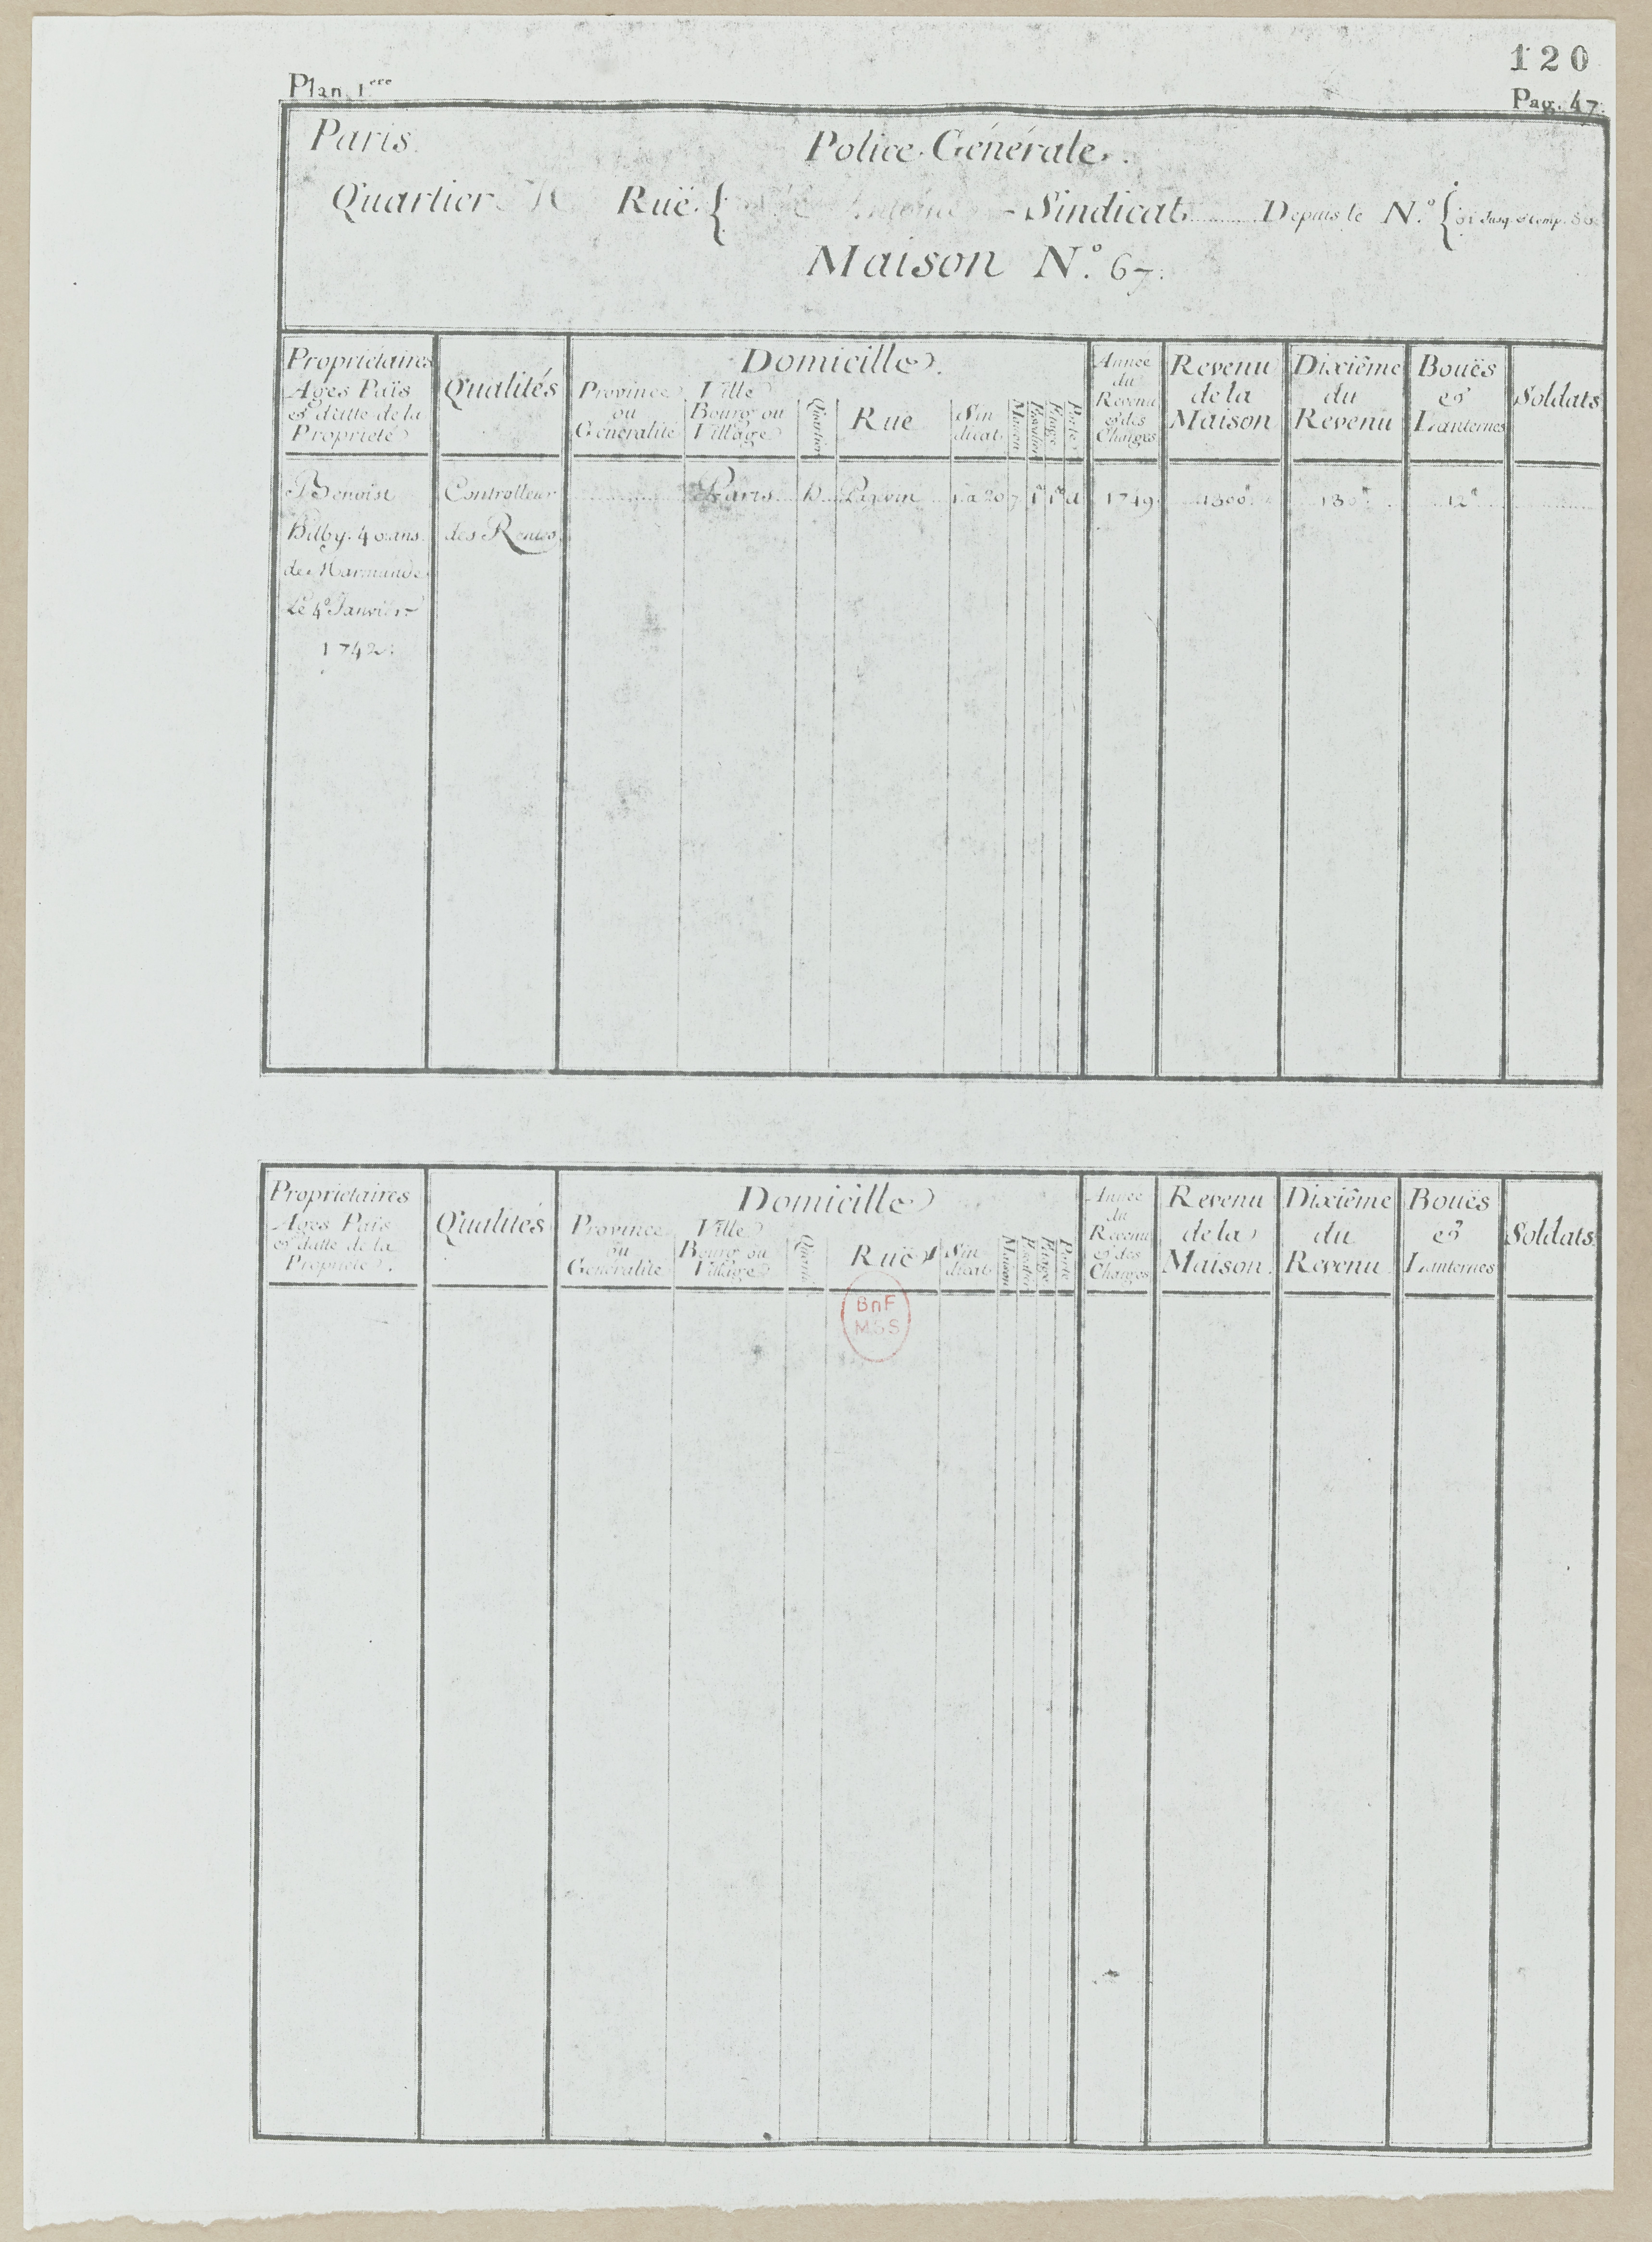 120
Plan. 1.ere
Pag. 47.
Paris.
Police Générale.
Quartier Ruë { Antoine Sindicat Depuis le N.º {
Maison N.º 67.
Proprietaires Ages Païs et datte de la Proprieté
Qualités
Domicille.
Province ou Généralité
Ville Bourg ou Village
Quartier
Ruë
Sindicat
Maison
Escalier
Etage
Porte
Année du Revenu et des Charges
Revenu de la Maison
Dixiême du Revenu
Bouës et Lanternes
Soldats
Benoist Controlleur Paris 1 a 20 7 1 1 a 1749 1300 130 12
Bilby. 40 ans. des Rentes
de Marmande
Le 4º Janvier
1742.
Proprietaires Ages Païs et datte de la Proprieté.
Qualités
Domicille
Province ou Généralité
Ville Bourg ou Village
Quartier
Ruë
Sindicat
Maison
Escalier
Etage
Porte
Année du Revenu et des Charges
Revenu de la Maison
Dixiême du Revenu
Bouës et Lanternes
Soldats
BnF
MSS